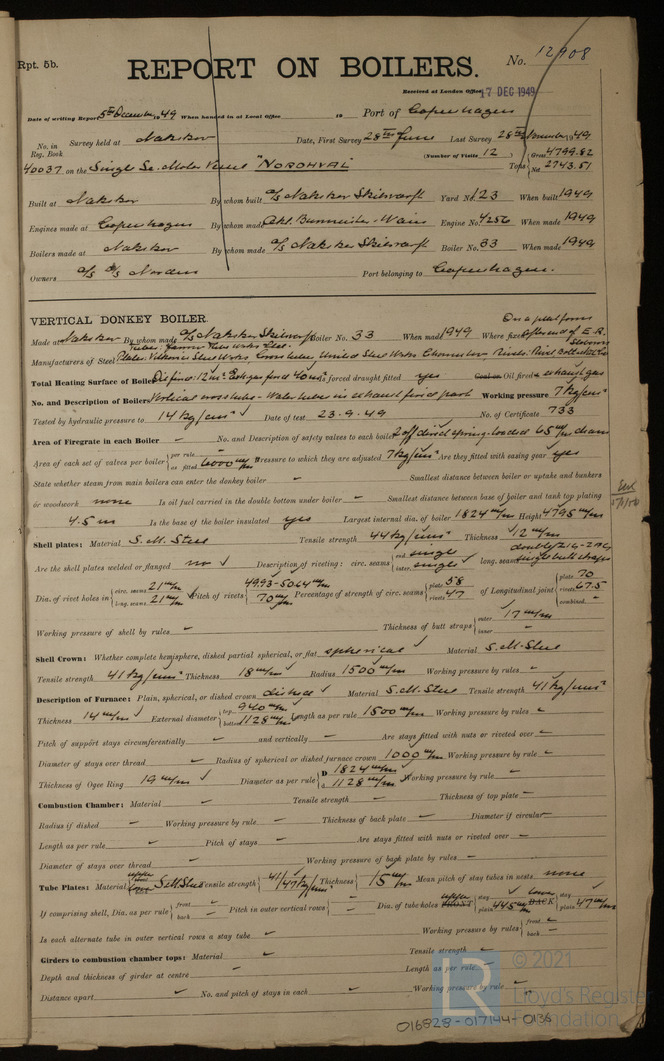 Rpt. 5b.
REPORT ON BOILERS.
No. 12908
Received at London Office 17 DEC 1949
Date of writing Report 5th December 1949 When handed in at Local Office 19 Port of Copenhagen
No. in Reg. Book Survey held at Nakskov Date, First Survey 28th June Last Survey 28th 1949
(Number of Visits 12)
40037 on the Single Sc. Motor Vessel "NORDHVAL" Tons Gross 4799.82 Net 2743.51
Built at Nakskov By whom built A/S Nakskov Skibsværft Yard No. 123 When built 1949
Engines made at Copenhagen By whom made Akt. Burmeister & Wain Engine No. 4256 When made 1949
Boilers made at Nakskov By whom made A/S Nakskov Skibsværft Boiler No. 33 When made 1949
Owners Norden Port belonging to Copenhagen.
VERTICAL DONKEY BOILER.
On a platform
Made at Nakskov By whom made A/S Nakskov Skibsværft Boiler No. 33 When made 1949 Where fixed E.R.
Manufacturers of Steel Plates: Steel Works United Steel Works
Total Heating Surface of Boiler Oil fired 12 m² Exh. gas fired 40 m² Is forced draught fitted yes Coal or Oil fired & exhaust gas
No. and Description of Boilers Vertical cross tube - Water tubes in exhaust fired part Working pressure 7 kg/cm²
Tested by hydraulic pressure to 14 kg/cm² Date of test 23-9-49 No. of Certificate 733
Area of Firegrate in each Boiler - No. and Description of safety valves to each boiler 2 off direct spring-loaded 65 m/m diam
Area of each set of valves per boiler per rule as fitted 6000 m/m² Pressure to which they are adjusted 7 kg/cm² Are they fitted with easing gear yes
State whether steam from main boilers can enter the donkey boiler - Smallest distance between boiler or uptake and bunkers
or woodwork none Is oil fuel carried in the double bottom under boiler - Smallest distance between base of boiler and tank top plating
4.5 m Is the base of the boiler insulated yes Largest internal dia. of boiler 1824 m/m Height 4795 m/m
Shell plates: Material S.M. Steel Tensile strength 44 kg/mm² Thickness 12 m/m
Are the shell plates welded or flanged no Description of riveting: circ. seams end single inter. single long. seams single butt straps
Dia. of rivet holes in circ. seams 21 m/m long. seams 21 m/m Pitch of rivets 49.93-50.64 m/m 70 m/m Percentage of strength of circ. seams plate 58 rivets 47 of Longitudinal joint plate 70 rivets 67.5 combined -
Working pressure of shell by rules - Thickness of butt straps outer 17 m/m inner -
Shell Crown: Whether complete hemisphere, dished partial spherical, or flat spherical Material S.M. Steel
Tensile strength 41 kg/mm² Thickness 18 m/m Radius 1500 m/m Working pressure by rules -
Description of Furnace: Plain, spherical, or dished crown dished Material S.M. Steel Tensile strength 41 kg/mm²
Thickness 14 m/m External diameter top 940 m/m bottom 1128 m/m Length as per rule 1500 m/m Working pressure by rules -
Pitch of support stays circumferentially - and vertically - Are stays fitted with nuts or riveted over -
Diameter of stays over thread - Radius of spherical or dished furnace crown 1000 m/m Working pressure by rule -
Thickness of Ogee Ring 19 m/m Diameter as per rule D 1824 m/m d 1128 m/m Working pressure by rule -
Combustion Chamber: Material - Tensile strength - Thickness of top plate -
Radius if dished - Working pressure by rule - Thickness of back plate - Diameter if circular -
Length as per rule - Pitch of stays - Are stays fitted with nuts or riveted over -
Diameter of stays over thread - Working pressure of back plate by rules -
Tube Plates: Material upper lower S.M. Steel Tensile strength 41/47 kg/mm² Thickness 15 m/m Mean pitch of stay tubes in nests none
If comprising shell, Dia. as per rule front - back - Pitch in outer vertical rows - Dia. of tube holes upper FRONT stay - plain 44.5 m/m lower BACK stay - plain 47 m/m
Is each alternate tube in outer vertical rows a stay tube - Working pressure by rules front - back -
Girders to combustion chamber tops: Material - Tensile strength -
Depth and thickness of girder at centre - Length as per rule -
Distance apart - No. and pitch of stays in each - Working pressure by rule -
LR © 2021 Lloyd's Register Foundation
016828-017144-0136